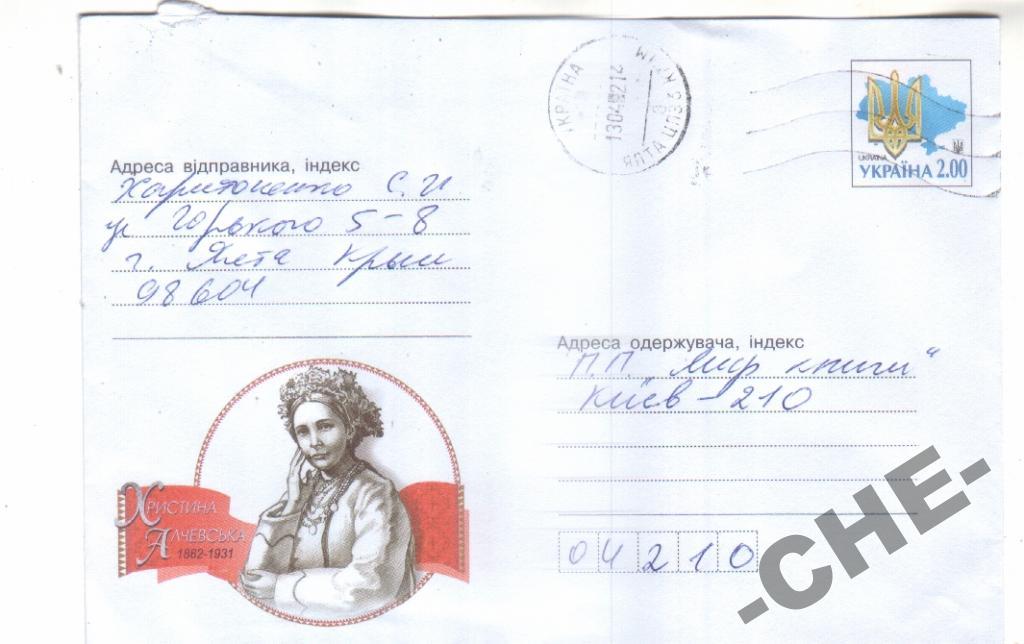 УКРАЇНА
130402 12
ЯЛТА ЦПЗ 5
UKRAINA
УКРАЇНА 2.00
Адреса відправника, індекс
Харитоненко С. И
ул Горького 5-8
г. Ялта Крым
98604
Адреса одержувача, індекс
П.П. "Мир книги"
Київ - 210
04210
ХРИСТИНА
АЛЧЕВСЬКА
1882-1931
-CHE-